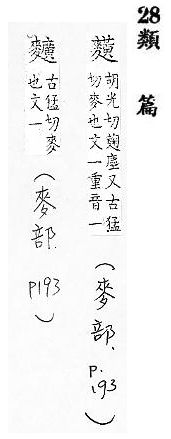 28 類篇
胡光切麴塵又古猛
切麥也文一重音一
(麥部. p.193)
古猛切麥
也文一
(麥部. P193)